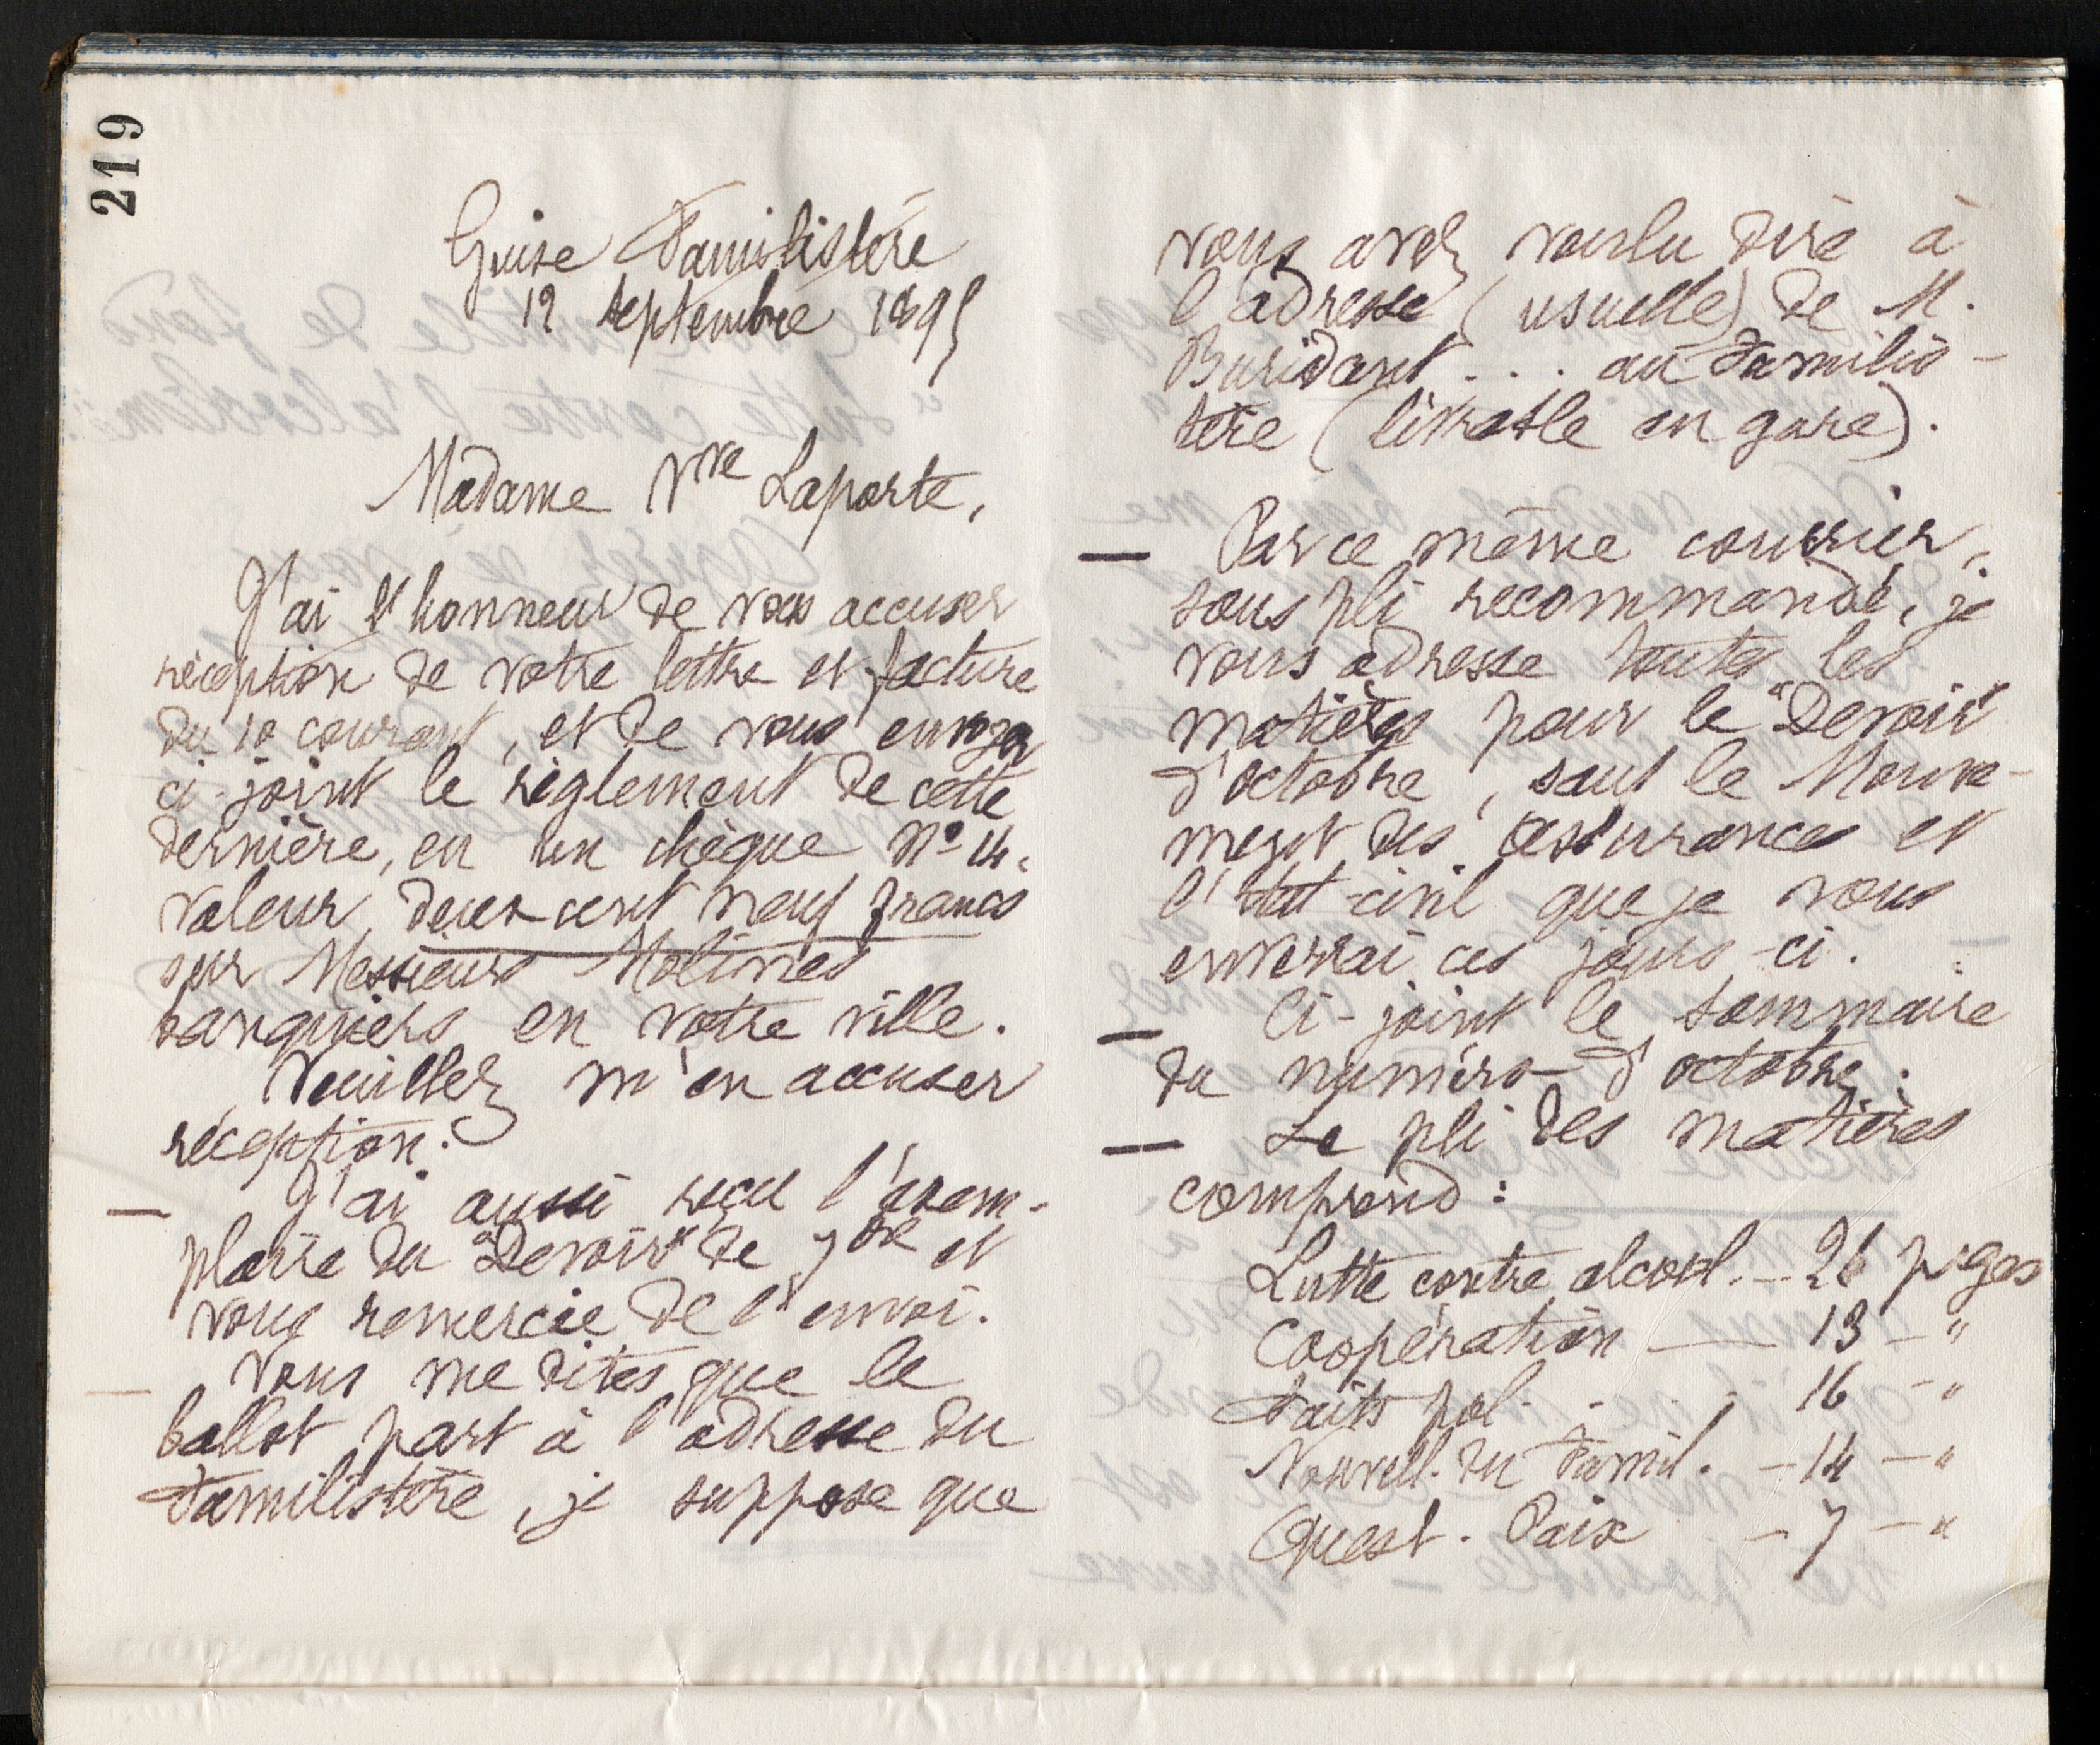 219
Guise Familistère
12 septembre 1895
Madame Vve Laporte,
J'ai l'honneur de vous accuser
réception de votre lettre et facture
du 10 courant, et de vous envoyer
ci-joint le règlement de cette
dernière, en un chèque No 14.
valeur deux cent neuf francs
sur Messieurs Molines
banquiers en votre ville.
Veuillez m'en accuser
réception.
— J'ai aussi reçu l'exem-
plaire du "Devoir" de 7bre et
vous remercie de l'envoi.
— Vous me dites que le
ballot part à l'adresse du
Familistère, je suppose que
vous avez voulu dire à
l'adresse (usuelle) de M.
Buridant . . . au Familis-
tère (livrable en gare).
— Par ce même courrier,
sous pli recommandé, je
vous adresse toutes les
matières pour le "Devoir"
d'octobre, sauf le Mouve-
ment des assurances et
l'état-civil que je vous
enverrai ces jours-ci.
— Ci-joint le sommaire
du numéro d'octobre.
— Le pli des matières
comprend :
Lutte contre alcool. — 26 pages
Coopération — 13 — "
Faits pol. . . . 16 — "
Nouvell. du Famil. — 14 — "
Quest. Paix — 7 — "